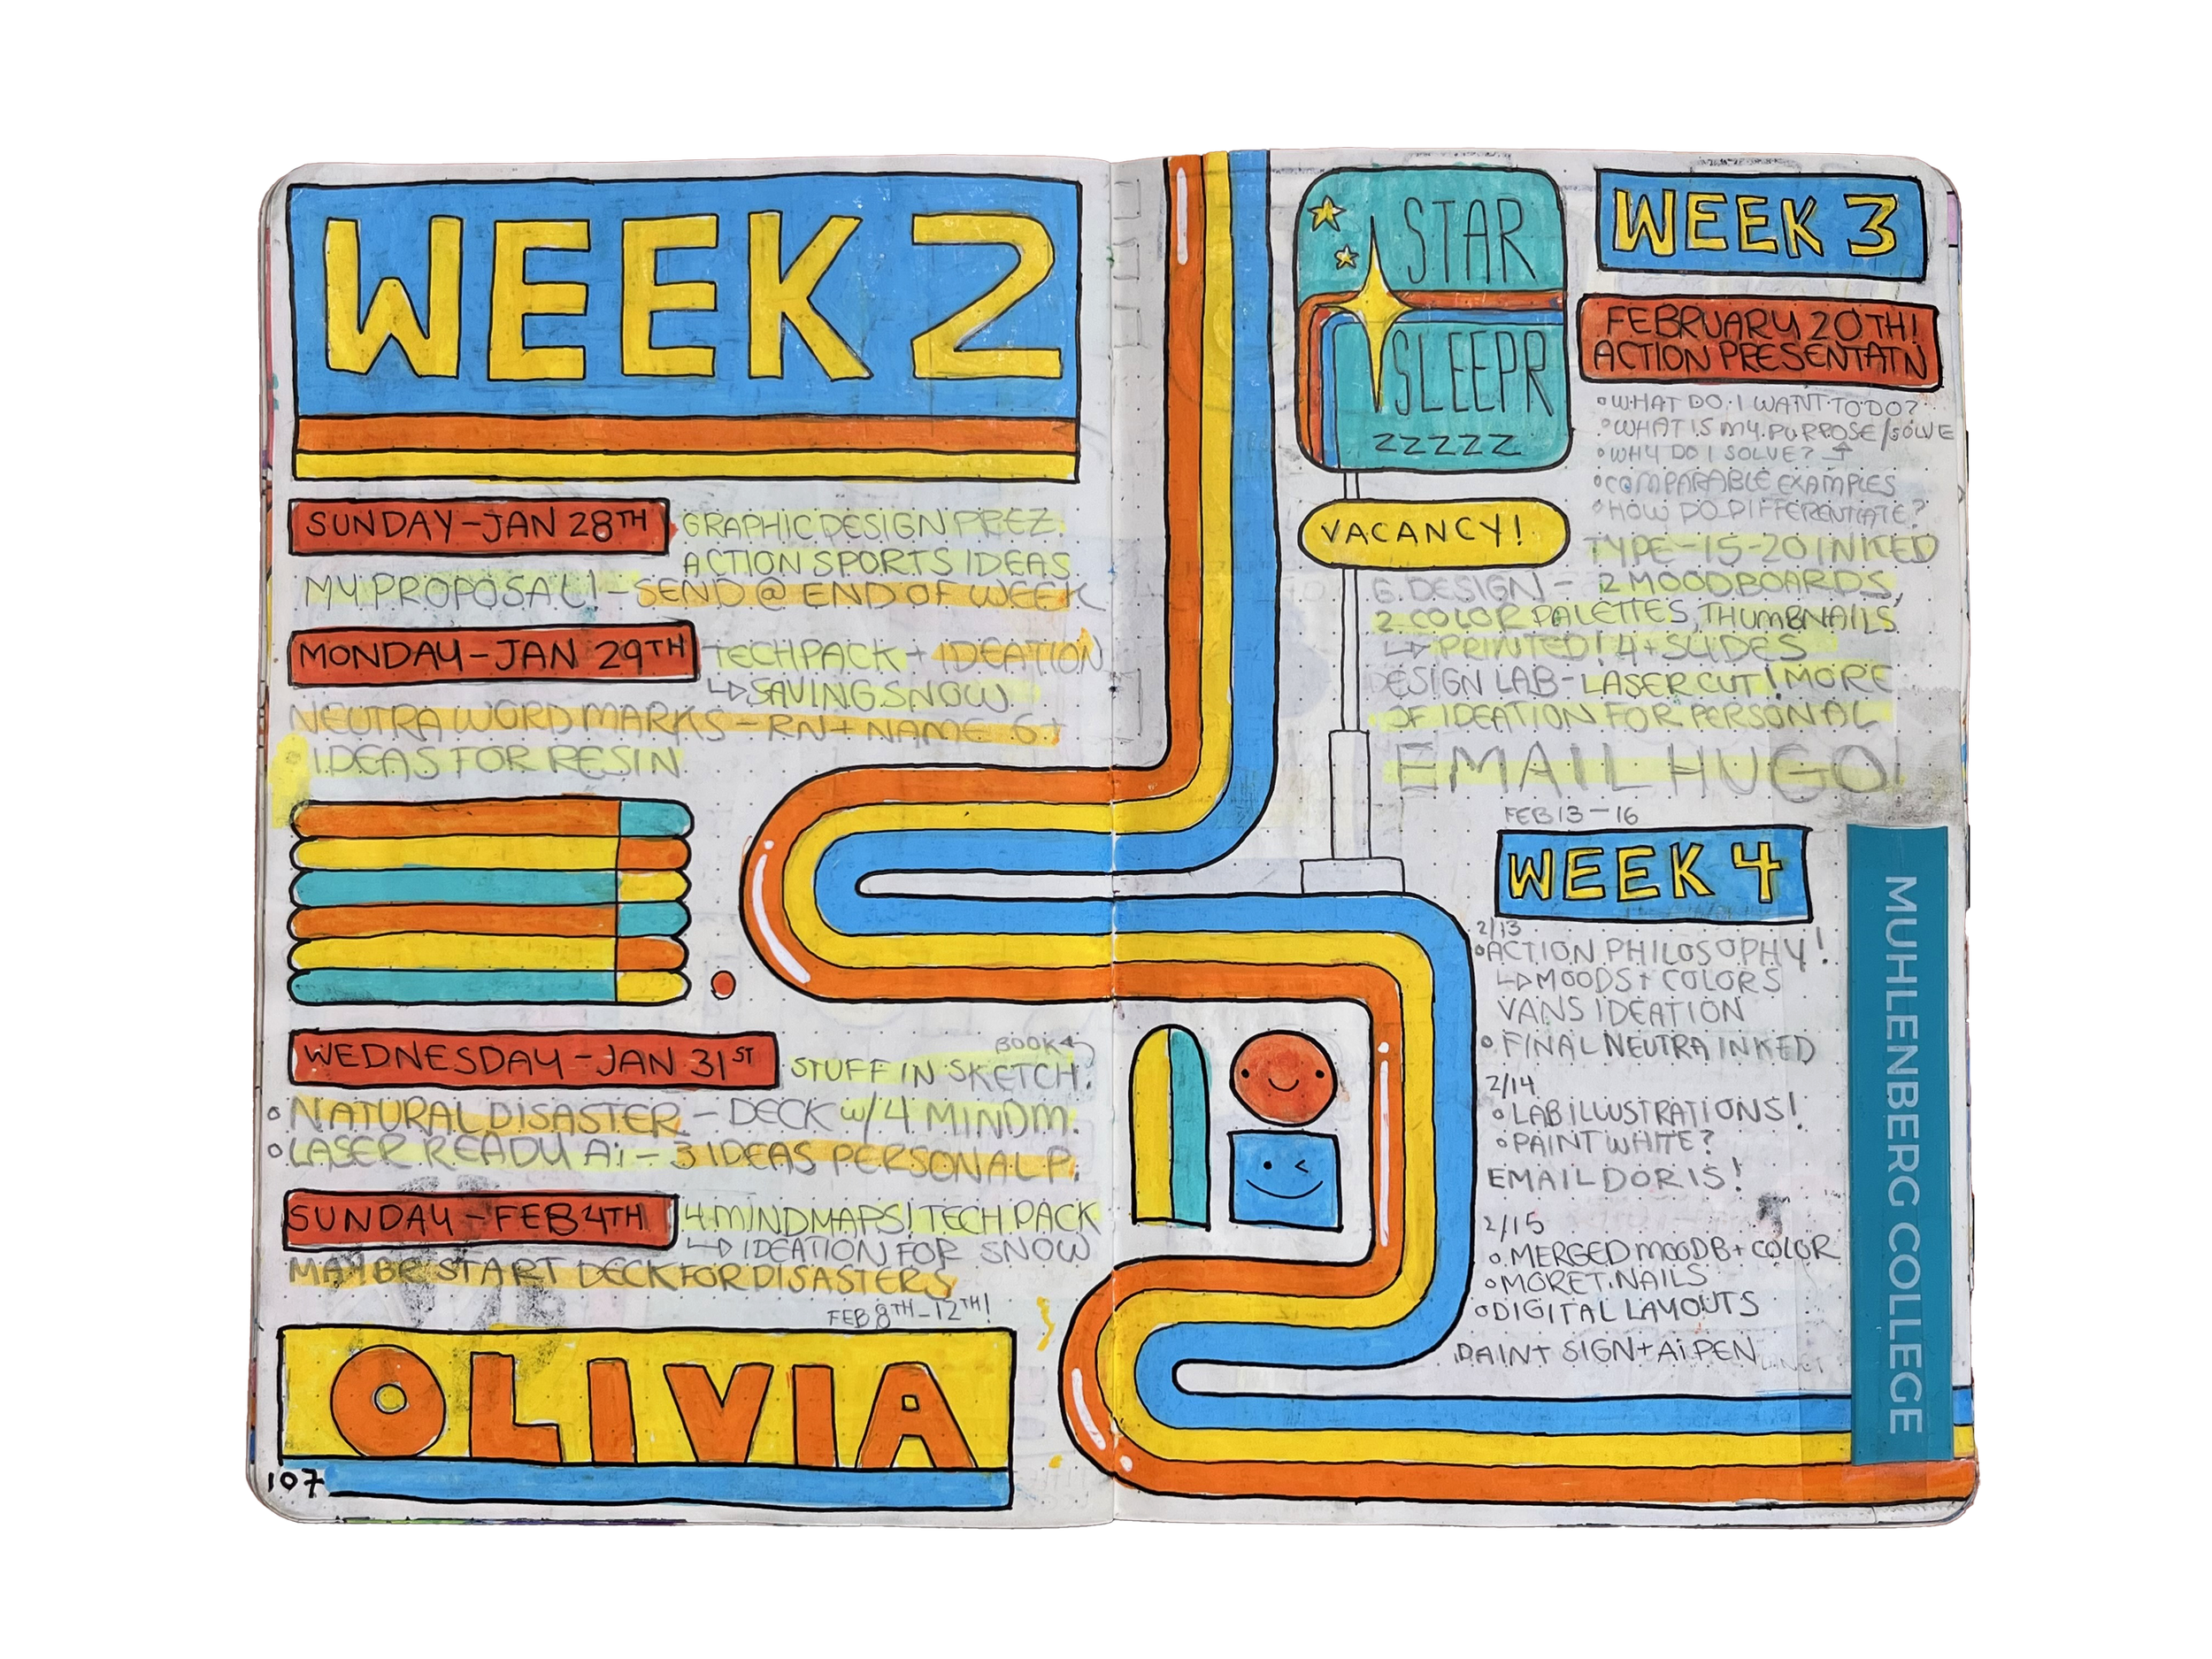 WEEK 2
SUNDAY-JAN 28TH
GRAPHIC DESIGN PREZ.
ACTION SPORTS IDEAS
MY PROPOSAL! - SEND @ END OF WEEK
MONDAY-JAN 29TH
TECHPACK + IDEATION
SAVING SNOW
NEUTRA WORD MARKS - RN + NAME 6+
IDEAS FOR RESIN
WEDNESDAY-JAN 31ST
BOOK
STUFF IN SKETCH.
NATURAL DISASTER - DECK w/ 4 MINDM.
LASER READY Ai - 3 IDEAS PERSONAL P.
SUNDAY-FEB 4TH
4 MINDMAPS! TECH PACK
IDEATION FOR SNOW
START DECK FOR DISASTERS
FEB 8TH-12TH!
OLIVIA
107
STAR
SLEEPR
ZZZZZ
VACANCY!
WEEK 3
FEBRUARY 20TH!
ACTION PRESENTATN
WHAT DO I WANT TO DO?
WHAT IS MY PURPOSE/SOLVE
WHY DO I SOLVE?
COMPARABLE EXAMPLES
HOW DO DIFFERENTIATE?
TYPE-15-20 INKED
G. DESIGN - 2 MOODBOARDS,
2 COLOR PALETTES, THUMBNAILS
PRINTED! 4+ SLIDES
DESIGN LAB-LASER CUT! MORE
OF IDEATION FOR PERSONAL
EMAIL HUGO!
FEB 13-16
WEEK 4
2/13
ACTION PHILOSOPHY!
MOODS + COLORS
VANS IDEATION
FINAL NEUTRA INKED
2/14
LAB ILLUSTRATIONS!
PAINT WHITE?
EMAIL DORIS!
2/15
MERGED MOODB + COLOR
MORE T. NAILS
DIGITAL LAYOUTS
PAINT SIGN + Ai PEN
MUHLENBERG COLLEGE